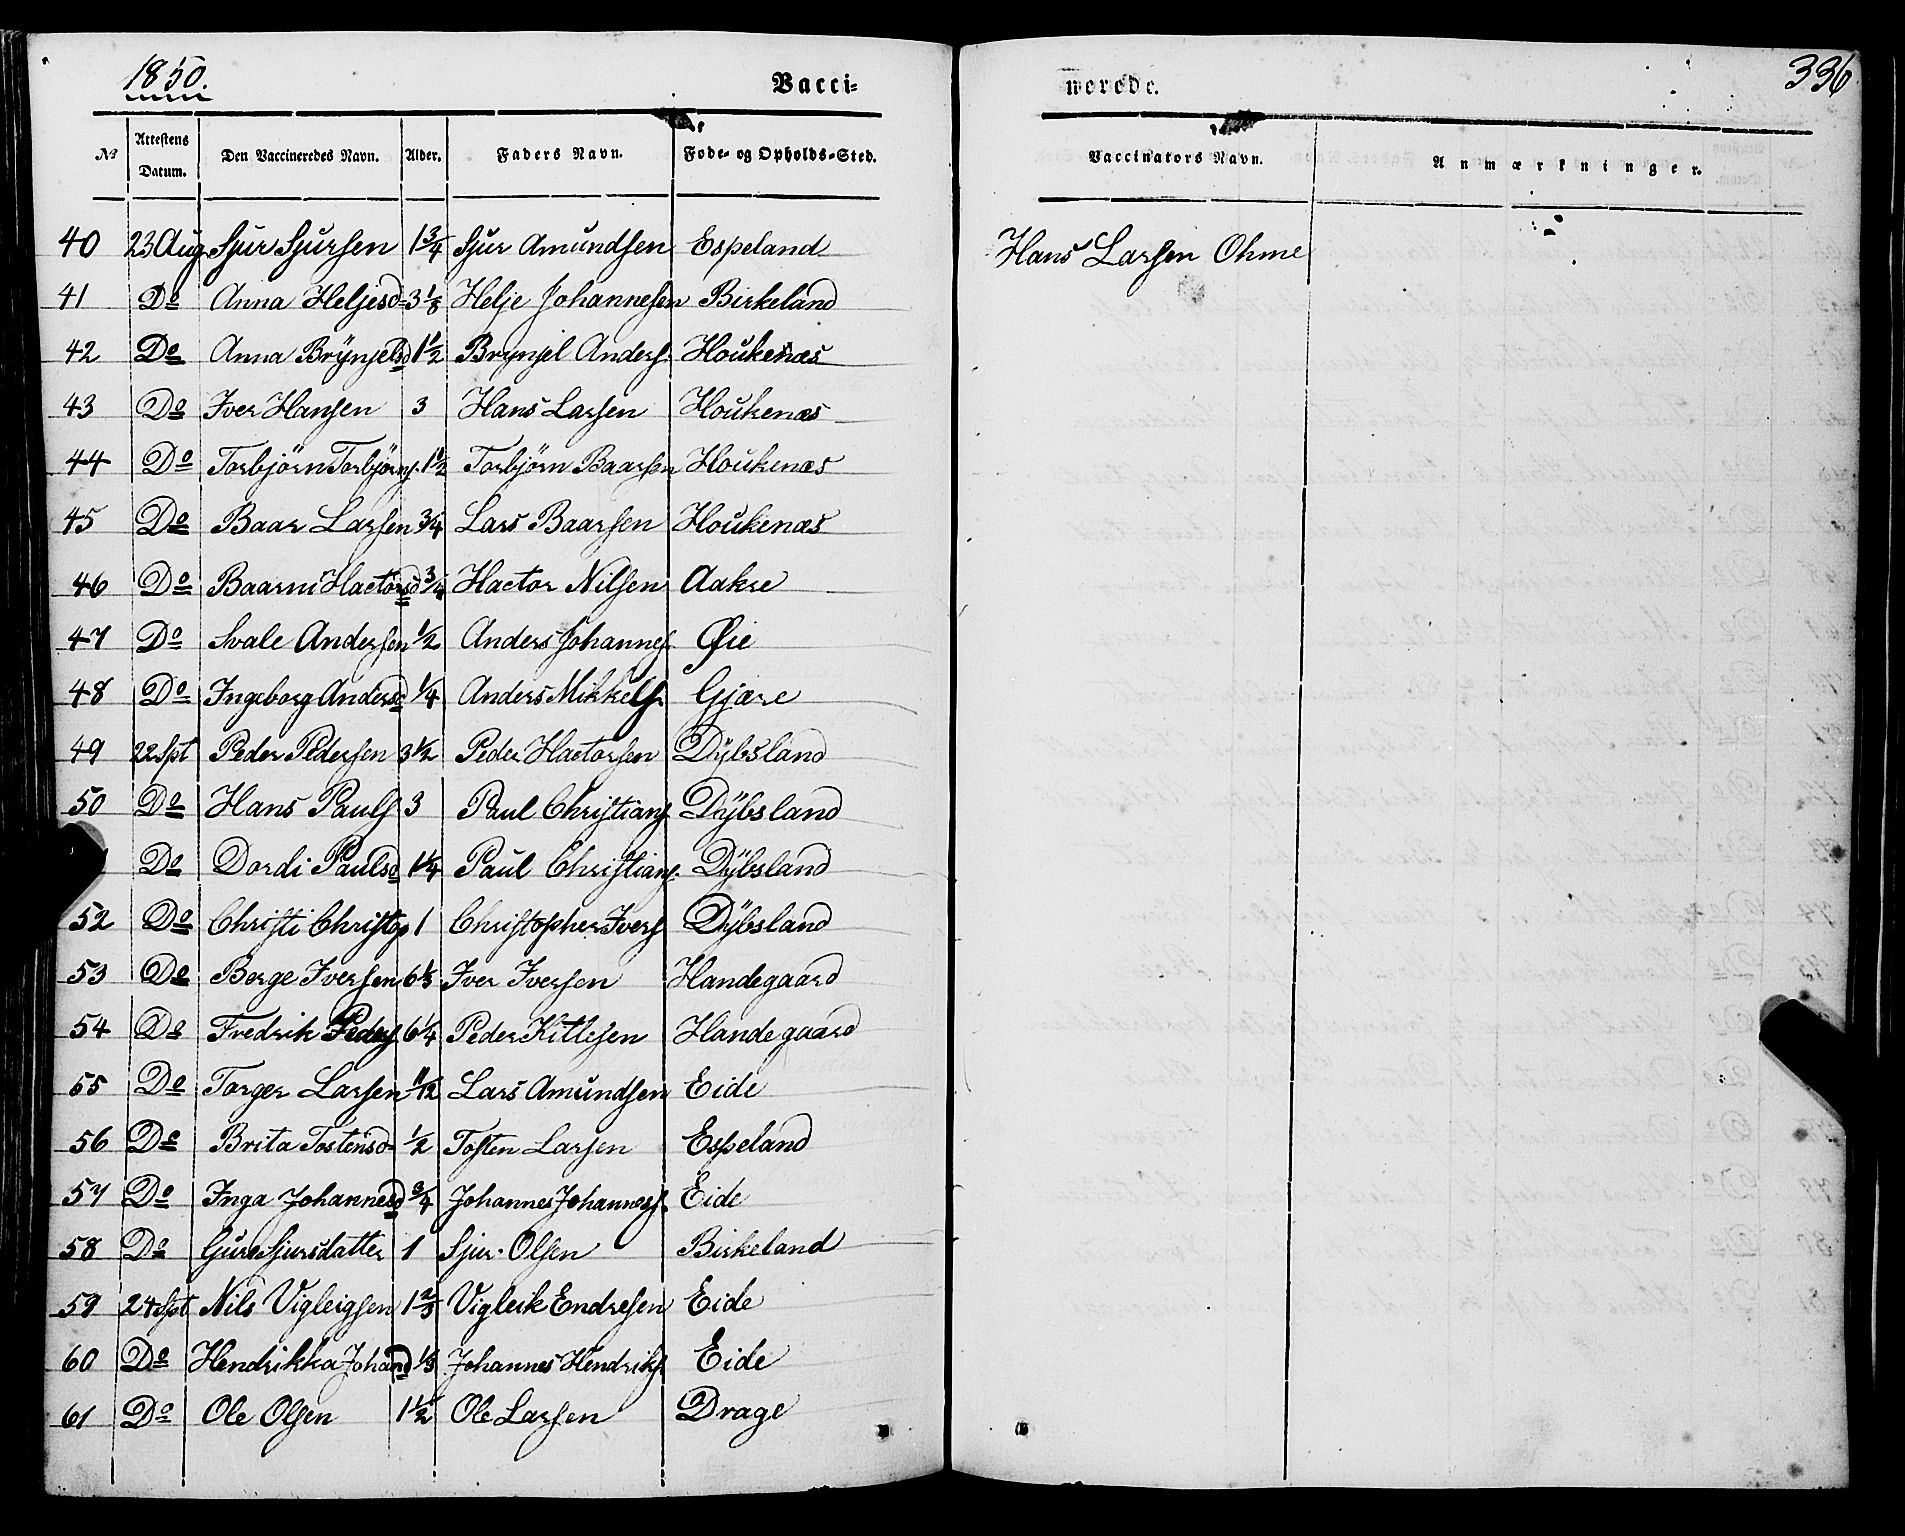 1850.
Vacci-
nerede.
336
No Attestens Datum. Den Vaccineredes Navn. Alder. Faders Navn. Føde- og Opholds-Sted. Vaccinators Navn. Anmærkninger.
40 23 Aug Sjur Sjursen 1 3/4 Sjur Amundsen Espeland Hans Larsen Ohme
41 Do Anna Heljesd 3 1/8 Helje Johannesen Birkeland
42 Do Anna Brÿnjelsd 1 1/2 Brynjel Anders. Houkenæs
43 Do Iver Hansen 3 Hans Larsen Houkenæs
44 Do Torbjörn Torbjörns. 1 1/2 Torbjörn Baarsen Houkenæs
45 Do Baar Larsen 3/4 Lars Baarsen Houkenæs
46 Do Baarni Hactorsd 3/4 Hactor Nilsen Aakre
47 Do Svale Andersen 1/2 Anders Johannes. Øie
48 Do Ingeborg Andersd 1/4 Anders Mikkels. Gjære
49 22 Spt Peder Pedersen 3 1/2 Peder Hactorsen Dÿbsland
50 Do Hans Pauls 3 Paul Christians. Dÿbsland
Do Dordi Paulsd 1 1/4 Paul Christians. Dÿbsland
52 Do Christi Christop 1 Christopher Ivers Dÿbsland
53 Do Berge Iversen 6 1/3 Iver Iversen Handegaard
54 Do Fredrik Peders 6 1/4 Peder Kitlesen Handegaard
55 Do Torger Larsen 11/12 Lars Amundsen Eide
56 Do Brita Tostensd 1/2 Tosten Larsen Espeland
57 Do Inga Johannesd 3/4 Johannes Johanness. Eide
58 Do Guro Sjursdatter 1 Sjur Olsen Birkeland
59 24 Spt Nils Vigleigsen 1 2/3 Vigleik Endresen Eide
60 Do Hendrikka Johand 1/3 Johannes Hendriks. Eide
61 Do Ole Olsen 1 1/2 Ole Larsen Drage